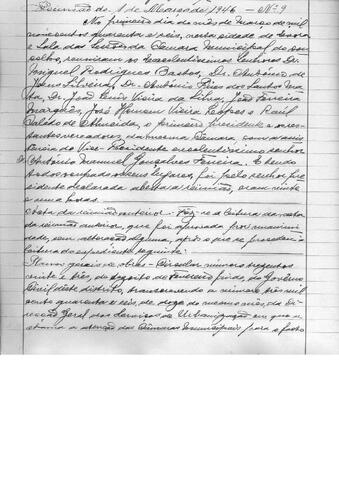 Reunião de 1 de Março de 1946 - Nº 9
No primeiro dia do mês de Março de mil
novecentos quarenta e seis, nesta cidade de Évora
e Sala das Sessões da Câmara Municipal do con-
celho, reuniram os Excelentíssimos Senhores Dr.
Miguel Rodrigues Bastos, Dr. António de
Silveira, Dr. António Pires dos Santos
Dr. João Luis Vieira da Silva, João Ferreira
Marques, José Vieira e Raúl
de Almeida, o primeiro Presidente e os res-
tantes vereadores da mesma Câmara com a assis-
tência do Vice-Presidente excelentíssimo senhor
António Manuel Gonçalves Ferreira. E tendo
todos ocupado os seus lugares, foi pelo senhor pre-
sidente declarada aberta a reunião, eram vinte
e uma horas.
Acta da reunião anterior - Fez-se a leitura da acta
da reunião anterior, que foi aprovada por unanimi-
dade, sem alteração alguma, após o que se procedeu à
leitura do expediente seguinte:
Planos gerais de obras - Circular número trezentos
vinte e três, de Fevereiro findo, do Governo
Civil deste distrito, transcrevendo a número três mil
cento quarenta e seis, de doze do mesmo mês, da Di-
recção Geral dos Serviços de Urbanização em que a
chama a atenção das Câmaras Municipais para o facto